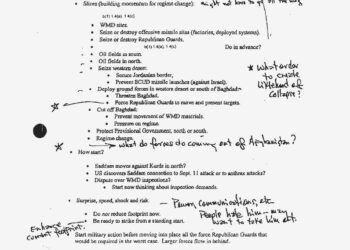 Slices (building momentum for regime change):
WMD sites.
Seize or destroy offensive missile sites (factories, deployed systems).
Seize or destroy Republican Guards.
Do in advance?
Oil fields in south.
Oil fields in north.
Seize western desert:
Secure Jordanian border,
Prevent SCUD missile launches (against Israel).
Deploy ground forces in western desert or south of Baghdad:
Threaten Baghdad.
Force Republican Guards to move and present targets.
* what order to create likelihood of collapse?
Cut off Baghdad:
Prevent movement of WMD materials.
Pressure on regime.
Protect Provisional Government, north or south.
Regime change.
what do forces do coming out of Afghanistan?
How start?
Saddam moves against Kurds in north?
US discovers Saddam connection to Sept. 11 attack or to anthrax attacks?
Dispute over WMD inspections?
Start now thinking about inspection demands.
Surprise, speed, shock and risk.
Power, communications, etc
Do not reduce footprint now.
Be ready to strike from a standing start.
People help him -- may want to take him out.
Enhance current footprint.
Start military action before moving into place all the force Republican Guards that
would be required in the worst case. Larger forces flow in behind.